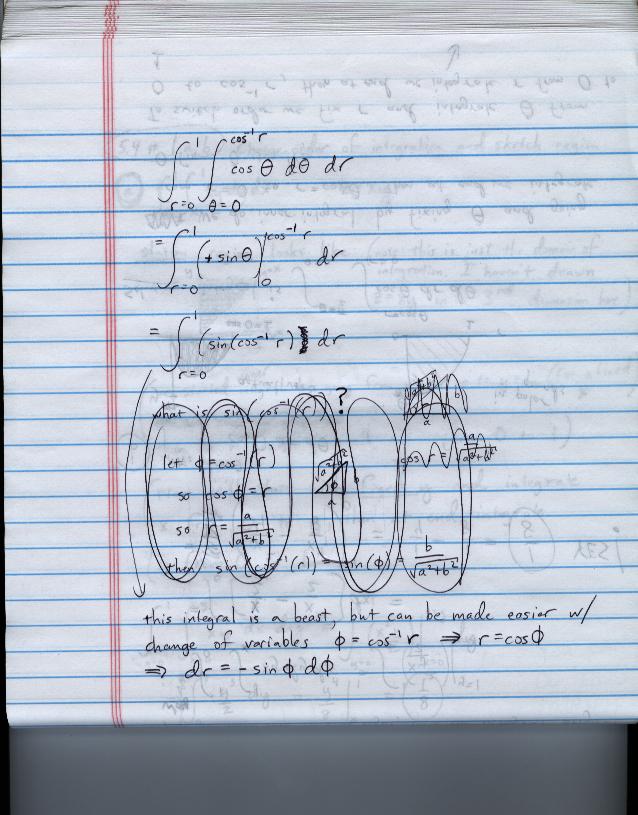 ∫_{r=0}^{1} ∫_{θ=0}^{cos⁻¹ r} cos θ dθ dr
= ∫_{r=0}^{1} (+ sin θ)|_{0}^{cos⁻¹ r} dr
= ∫_{r=0}^{1} (sin(cos⁻¹ r)) dr
what is sin(cos⁻¹(r)) ?
let φ = cos⁻¹(r)
so cos φ = r
so r = a/√(a²+b²)
then sin(cos⁻¹(r)) = sin(φ) = b/√(a²+b²)
this integral is a beast, but can be made easier w/
change of variables φ = cos⁻¹ r ⇒ r = cos φ
⇒ dr = - sin φ dφ